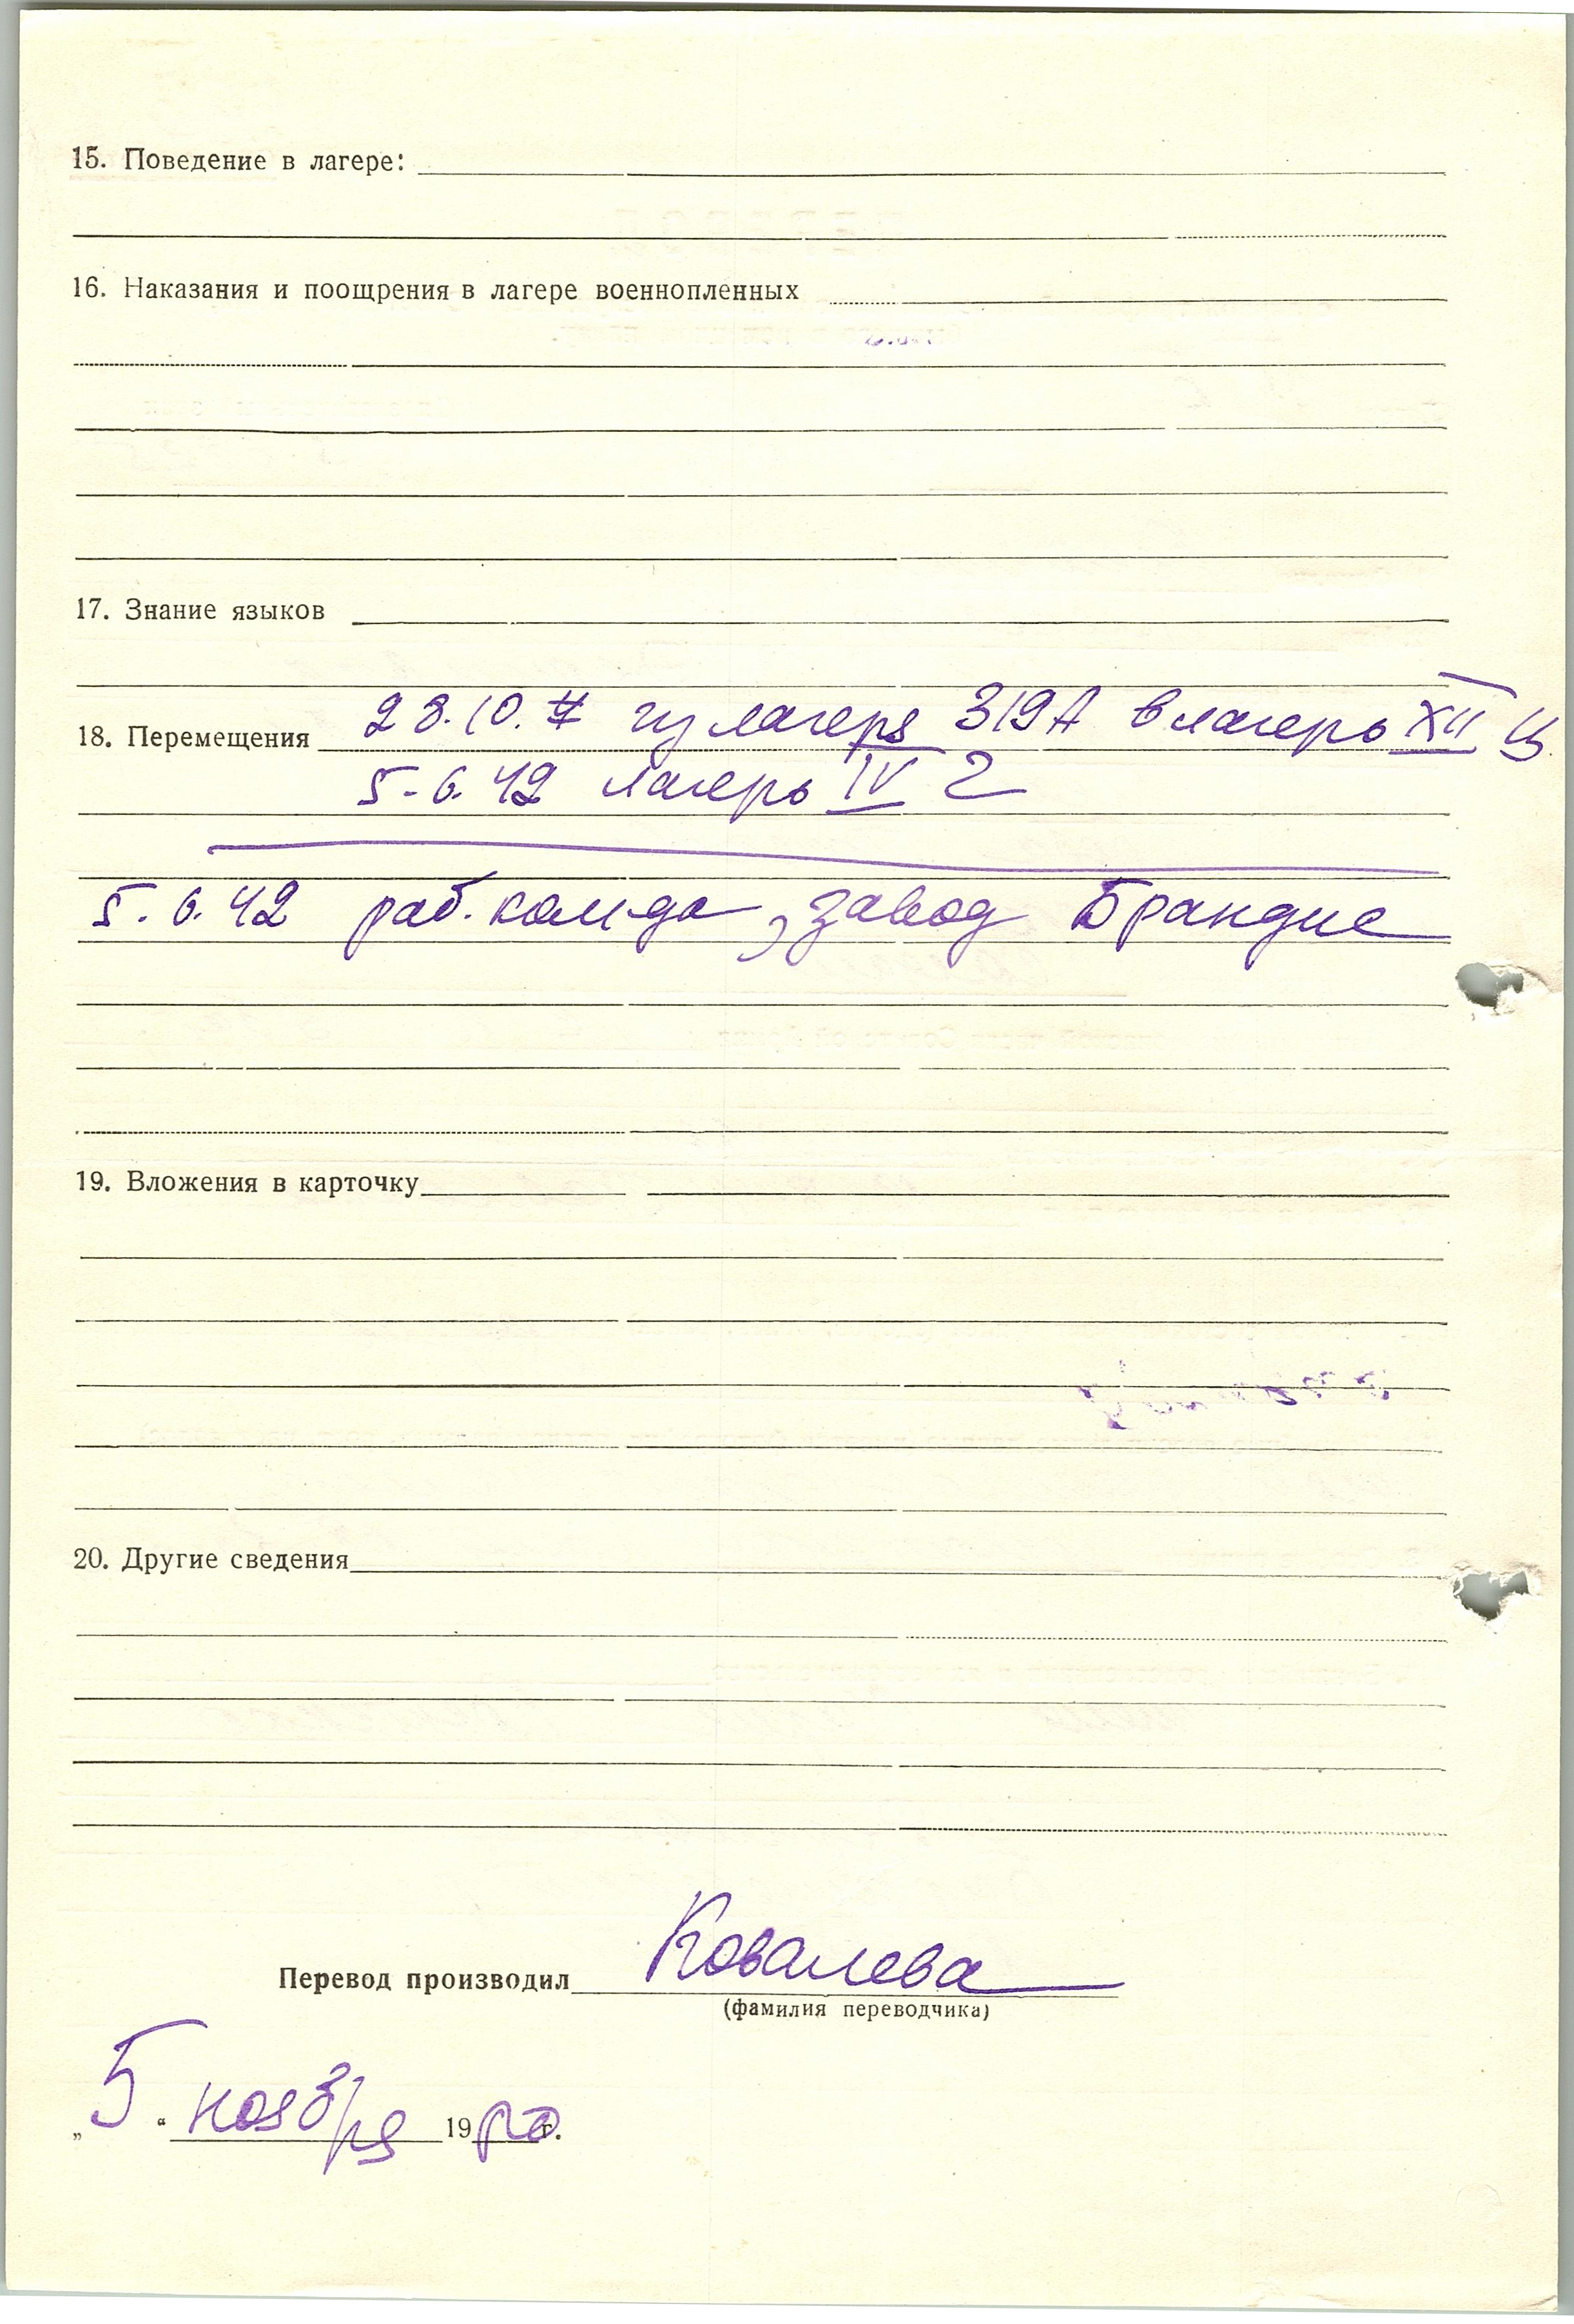 15. Поведение в лагере:
16. Наказания и поощрения в лагере военнопленных
17. Знание языков
18. Перемещения 28.10. из лагеря 319А в лагерь XII
5.6.42 лагерь IV Г
5.6.42 раб. ком-да, завод Брандис
19. Вложения в карточку
20. Другие сведения
Перевод производил Ковалева
(фамилия переводчика)
„5“ ноября 19 г.